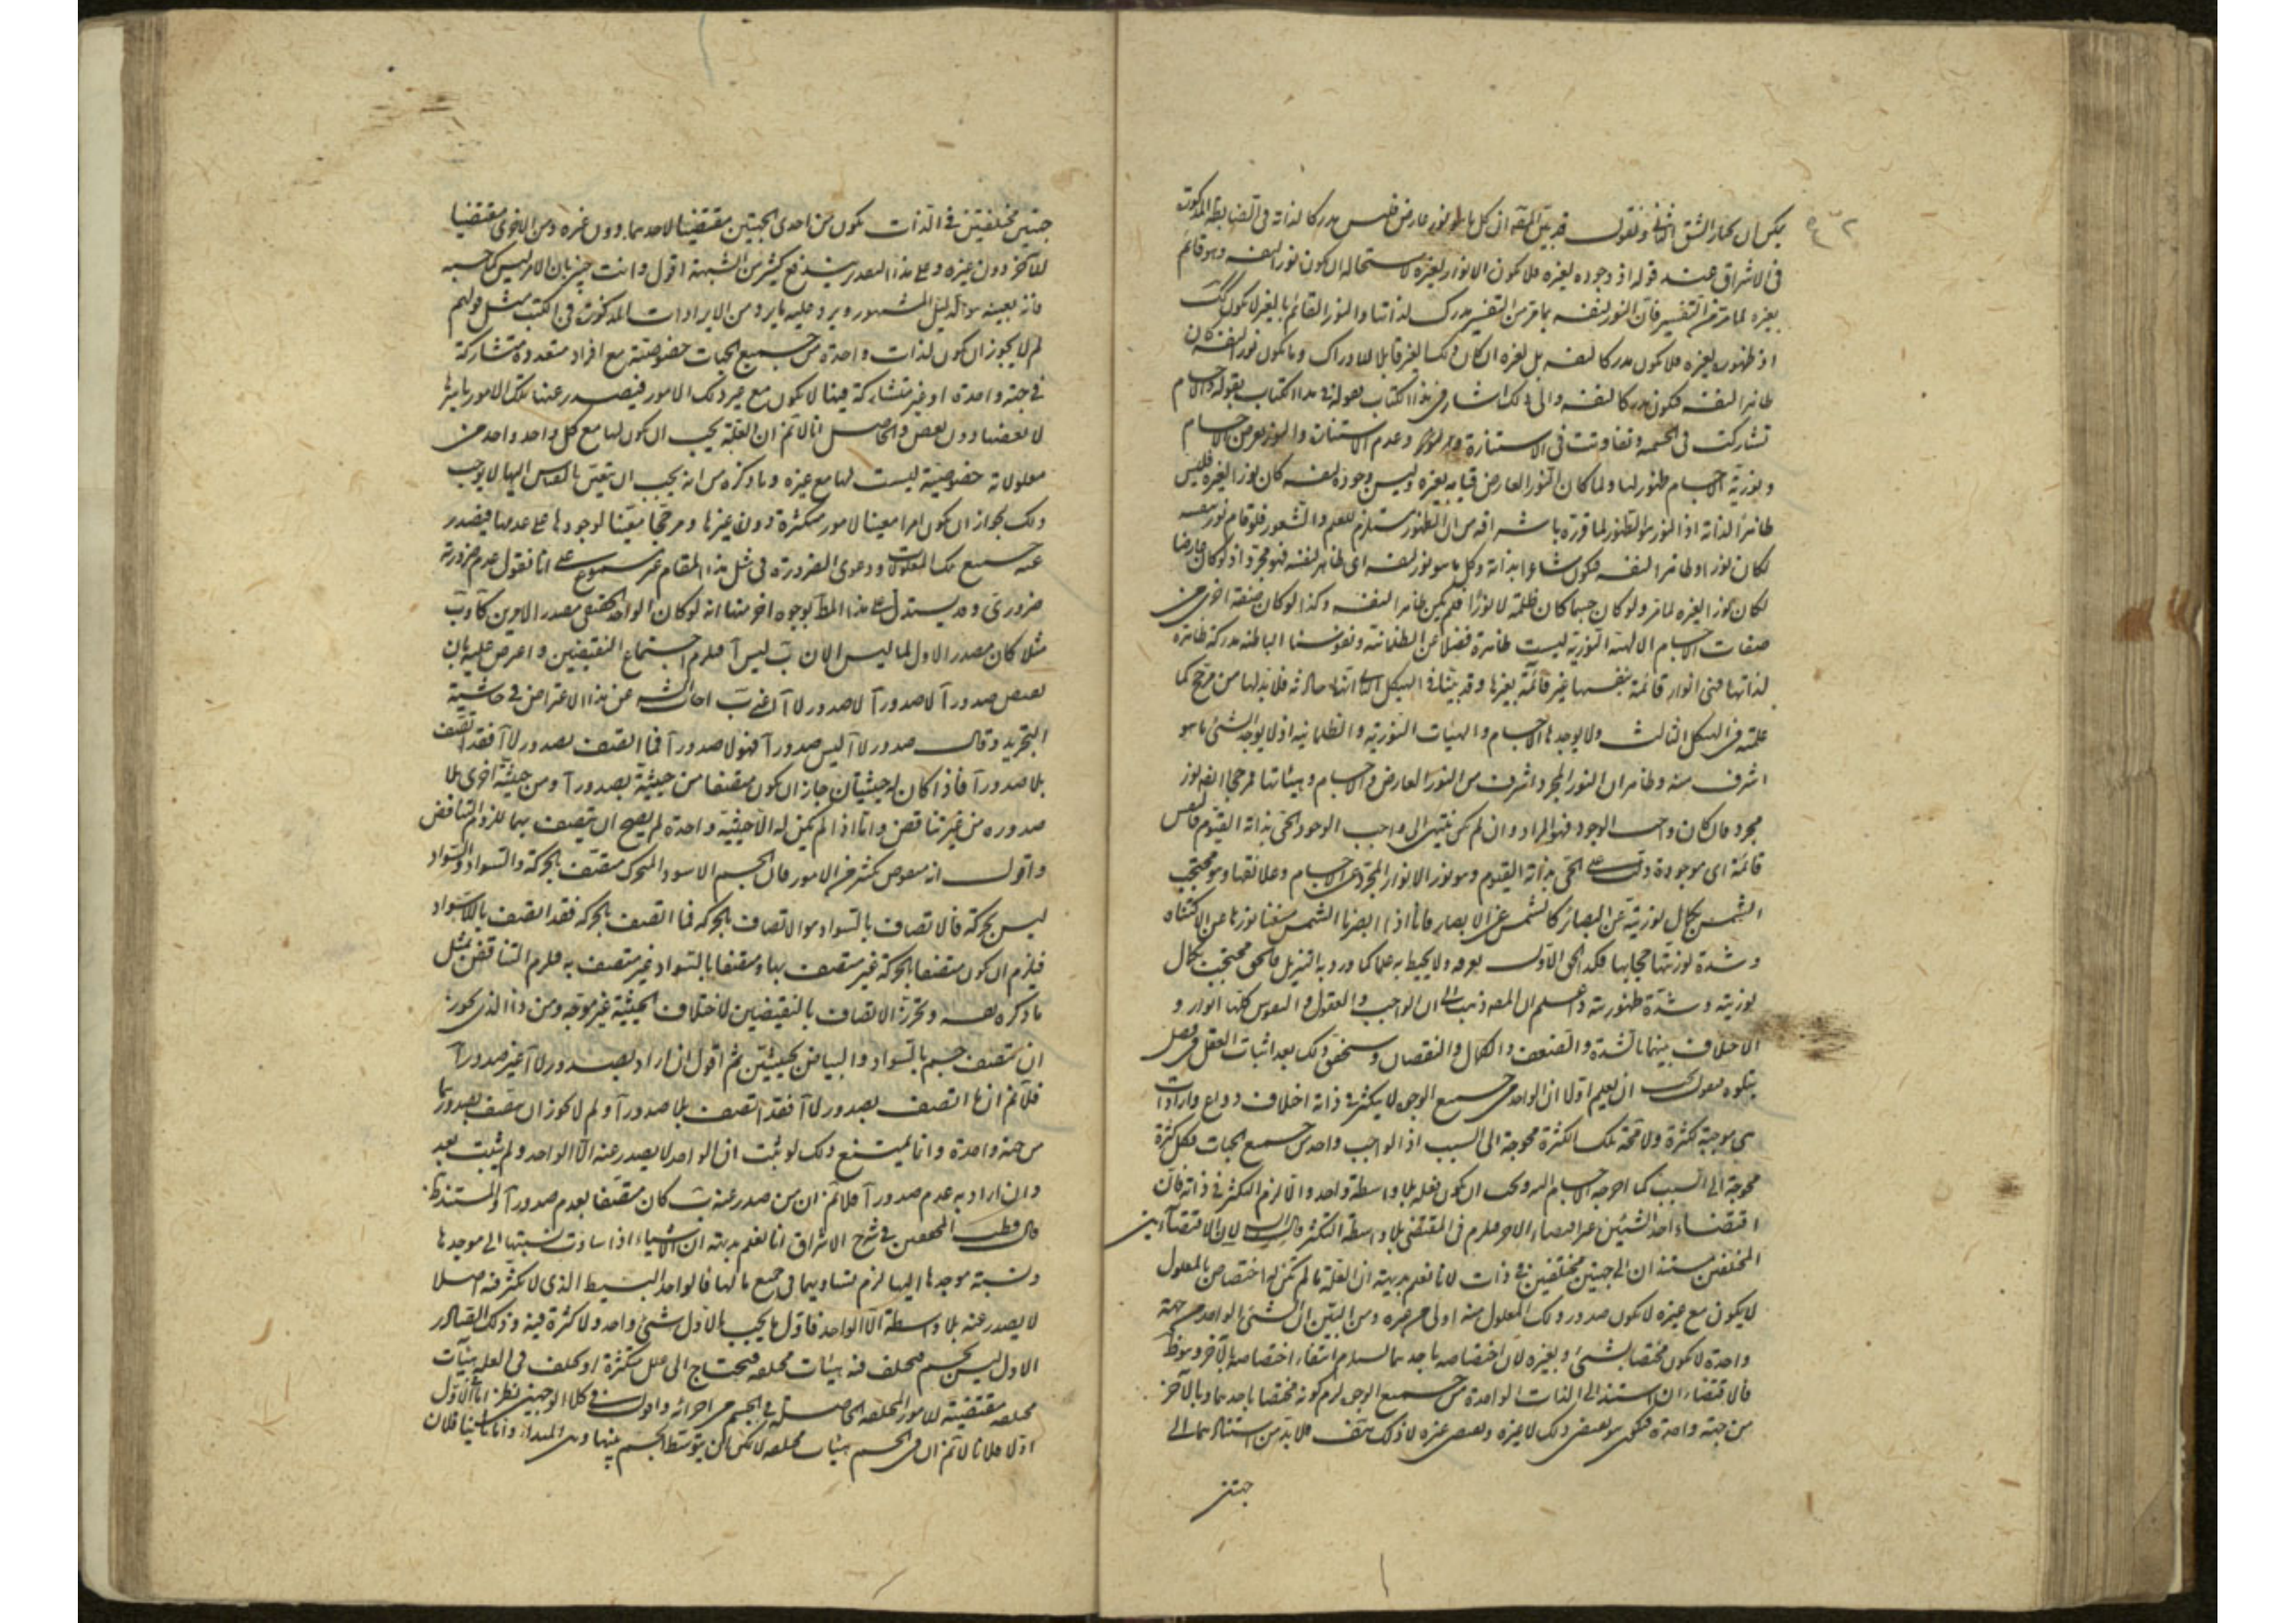 يمكن ان يختار الشق الثاني ونقول قد بين المصنف ان كل ما هو نور عارض فليس مدركا لذاته في الضابطة المذكورة
في الاشراق عند قوله اذ وجوده لغيره فلا يكون الا نورا لغيره لاستحالة ان يكون نورا لنفسه وهو قائم
بغيره لما مر من التفسير فان النور لنفسه بما مر من التفسير مدرك لذاتها والنور القائم بالغير لا يكون كك
اذ ظهوره لغيره فلا يكون مدركا لنفسه بل لغيره ان كان ذلك الغير قابلا للادراك وما يكون نورا لنفسه كان
ظاهرا لنفسه فيكون مدركا لنفسه والى ذلك اشار في هذا الكتاب بقوله والاجسام
تشاركت في الجسمية وتفاوتت في الاستنارة وعدم الاستنارة والنور عرض في الاجسام
ونورية الاجسام ظهور لها ولما كان النور العارض قيامه بغيره وليس وجوده لنفسه كان نورا لغيره فليس
ظاهرا لذاته اذ النور هو الظهور لما قرره باشراقه من ان الظهور مستلزم للعلم والشعور فلو قام نور بنفسه
لكان نورا وظاهرا لنفسه فيكون شاعرا بذاته وكل ما هو نور لنفسه اي ظاهر لنفسه فهو مجرد اذ لو كان عارضا
لكان نورا لغيره لما مر ولو كان جسما كان ظلمة لا نورا فلم يكن ظاهرا لنفسه وكذا لو كان صفة اخرى من
صفات الاجسام الا الهيئة النورية ليست ظاهرة فضلا عن الظلمانية ونفوسنا الناطقة مدركة ظاهرة
لذاتها فهي انوار قائمة بنفسها غير قائمة بغيرها وقد بينا في الهيكل الثاني انها حادثة فلا بد لها من مرجح كما
علمته في الهيكل الثالث ولا يوجدها الاجسام والهيئات النورية والظلمانية اذ لا يوجد الشيء ما هو
اشرف منه وظاهر ان النور المجرد اشرف من النور العارض في الاجسام وهيئاتها فمرجحها ايضا نور
مجرد فان كان واجب الوجود فهو المراد وان لم يكن ينتهي الى واجب الوجود الحي بذاته القيوم فالنفس
قائمة اي موجودة دلت على الحي بذاته القيوم وهو نور الانوار المجرد عن الاجسام وعلائقها وهو محتجب
الشمس بكمال نوريته عن البصائر كالشمس عن الابصار فانا اذا ابصرنا الشمس منعنا نورها عن الاكتناه
وشدة نوريتها حجابها فكذا الحق الاول يعرفه ولا يحيط به علما كما ورد به التنزيل فالحق محتجب بكمال
نوريته وشدة ظهوريته واعلم ان المصنف ذهب الى ان الواجب والعقول والنفوس كلها انوار و
الاختلاف بينها بالشدة والضعف والكمال والنقصان وسنحقق ذلك بعد اثبات العقل في فصل
يتلوه فنقول يجب ان يعلم اولا ان الواحد من جميع الوجوه لا يتكثر في ذاته اختلاف دواع وارادات
هي موجبة بكثرة ولا محة تلك الكثرة محوجة الى السبب اذ الواجب واحد من جميع الجهات فكل كثرة
محوجة الى السبب كما احوجه الاجسام اليه ويجب ان يكون فعله بلا واسطة واحدا والا لزم التكثر في ذاته فان
اقتضاء احد الشيئين غير اقتضاء الاخر فيلزم في المقتضي بلا واسطة التكثر قال لان الاقتضائين
المختلفين مستندان الى جهتين مختلفتين في ذات لانا نعلم بديهة ان العلة ما لم يكن له اختصاص بالمعلول
لا يكون مع غيره لا يكون صدور ذلك المعلول منه اولى من غيره ومن البين ان الشيء الواحد من جهة
واحدة لا يكون مختصا بشيء وبغيره لان اختصاصه باحدهما يستلزم انتفاء اختصاصه بالآخر وهو ظ
فالاقتضاءان استندا الى الذات الواحدة من جميع الوجوه لزم كونه مختصا باحدهما وبالآخر
من جهة واحدة فيكون هو يقتضي ذلك لا غيره ويقتضي غيره لا ذلك هف فلا بد من استنادهما الى
جهتين
جهتين مختلفتين في الذات يكون من احدى الجهتين مقتضيا لاحدهما دون غيره ومن الاخرى مقتضيا
للآخر دون غيره وعلى هذا التقدير يندفع كثير من الشبهة اقول وانت خبير بان الامر ليس كما حسبه
فانه بعينه هو الدليل المشهور ويرد عليه ما يرد من الايرادات المذكورة في الكتب مثل قولهم
لم لا يجوز ان يكون لذات واحدة من جميع الجهات خصوصية مع افراد متعددة متشاركة
في جهة واحدة او غير متشاركة فيها لا يكون مع غير ذلك الامور فيصدر عنها تلك الامور باسرها
لا بعضها دون بعض والحاصل انا لا نم ان العلة يجب ان يكون لها مع كل واحد واحد من
معلولاته خصوصية ليست لها مع غيره وما ذكره من انه يجب ان يتعين بالقياس اليها لا يوجب
ذلك لجواز ان يكون امرا معينا لامور متكثرة دون غيرها ومرجحا معينا لوجودها على عدمها فيصدر
عنه جميع تلك المعلولات ودعوى الضرورة في مثل هذا المقام غير مسموع على انا نقول عدم ضرورة
ضروري وقد يستدل على هذا المط بوجوه اخر منها انه لو كان الواحد الحقيقي مصدر الامرين كآ وب
مثلا كان مصدر الاول لما ليس الان ب ليس آ فيلزم اجتماع النقيضين واعرض عليه بان
نقيض صدور آ لا صدور آ لا صدور لا آ اعني ب اجاب الشه عن هذا الاعتراض في حاشية
التجريد وقال صدور لا آ ليس صدور آ فهو لا صدور آ فما اتصف بصدور لا آ فقد اتصف
بلا صدور آ فاذا كان له حيثيتان جاز ان يكون متصفا من حيثية بصدور آ ومن حيثية اخرى بلا
صدوره من غير تناقض واما اذا لم يكن له الا حيثية واحدة لم يصح ان يتصف بهما للزوم التناقض
واقول انه منقوض بكثير من الامور فان الجسم الاسود المتحرك متصف بالحركة والسواد والسواد
ليس بحركة فالاتصاف بالسواد هو الاتصاف بالحركة فما اتصف بالحركة فقد اتصف باللاسواد
فيلزم ان يكون متصفا بالحركة غير متصف بها ومتصفا بالسواد غير متصف به فلزم التناقض بمثل
ما ذكره بعينه وتحرزه الاتصاف بالنقيضين لاختلاف الحيثية غير موجه ومن ذا الذي يجوز
ان يتصف جسم بالسواد والبياض بحيثيتين ثم اقول ان اراد بصدور لا آ غير صدور آ
فلا نم ان ما اتصف بصدور لا آ فقد اتصف بلا صدور آ ولم لا يجوز ان يتصف بصدورهما
من جهة واحدة وانما يمتنع ذلك لو ثبت ان الواحد لا يصدر عنه الا الواحد ولم يثبت بعد
وان اراد به عدم صدور آ فلا نم ان من صدر عنه ب كان متصفا بعدم صدور آ والمستند ظ
قال قطب المحققين في شرح الاشراق انا نعلم بديهة ان الاشياء اذا ساوت نسبتها الى موجدها
ونسبة موجدها اليها لزم تساويهما في جميع ما لها فالواحد البسيط الذي لا تكثر فيه اصلا
لا يصدر عنه بلا واسطة الا الواحد فاول ما يجب بالاول شيء واحد ولا كثرة فيه وذلك الصادر
الاول ليس بجسم فيختلف فيه هيئات مختلفة فيحتاج الى علل متكثرة او يختلف في العلة هيئات
مختلفة مقتضية للامور المختلفة الحاصلة في الجسم من اجزائه واقول في كلا الوجهين نظر اما الاول
اولا فلانا لا نم ان في الجسم هيئات مختلفة لا يمكن ان يتوسط الجسم بينها وبين المبداء واما ثانيا فلان